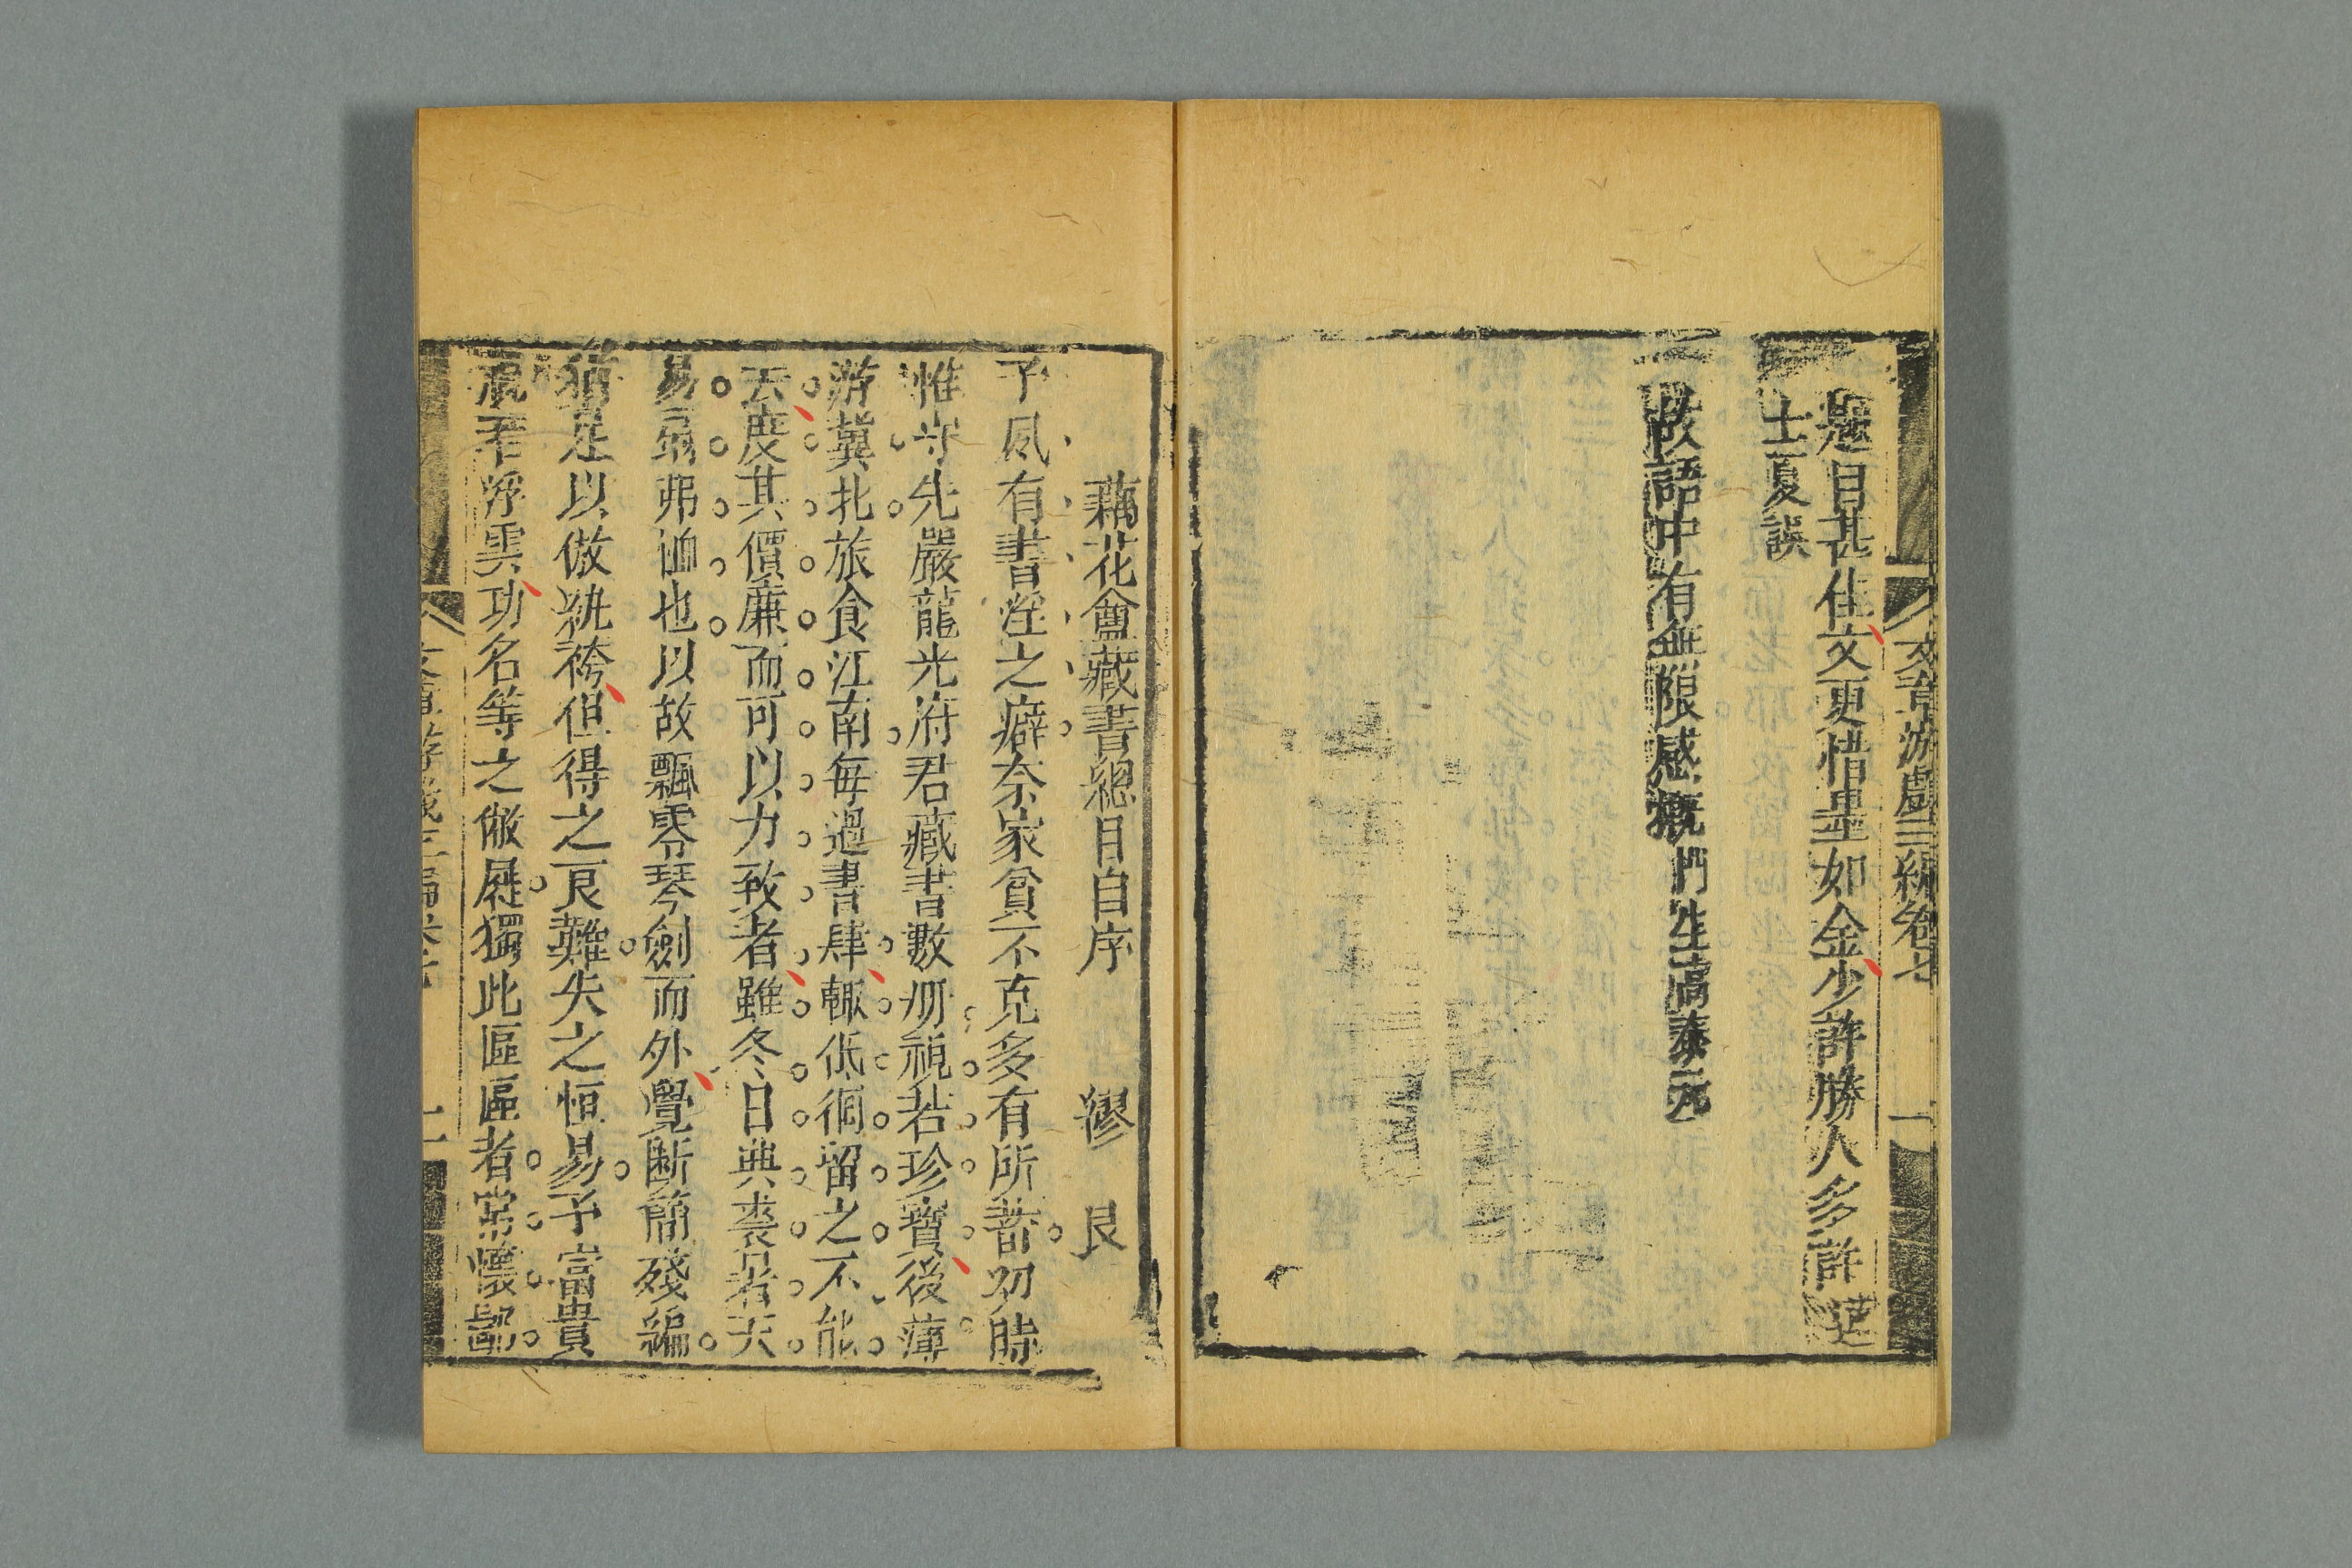 文章游戲三編卷七
題目甚佳文更惜墨如金少許勝人多許
士夏誤
故語中有無限感慨 門生馮泰元
藕花盦藏書總目自序 繆艮
予夙有書淫之癖奈家貧不克多有所蓄幼時
惟守先嚴龍光府君藏書數册視若珍寶後薄
游冀北旅食江南每過書肆輒低徊留之不能
去度其價廉而可以力致者雖冬日典裘召者天
易扇弗恤也以故飄零琴劍而外覺斷簡殘編
猶足以傲紈袴但得之艮難失之恒易予富貴
浮雲功名等之敝屣獨此區區者常懷鄙
文章游戲三編卷七